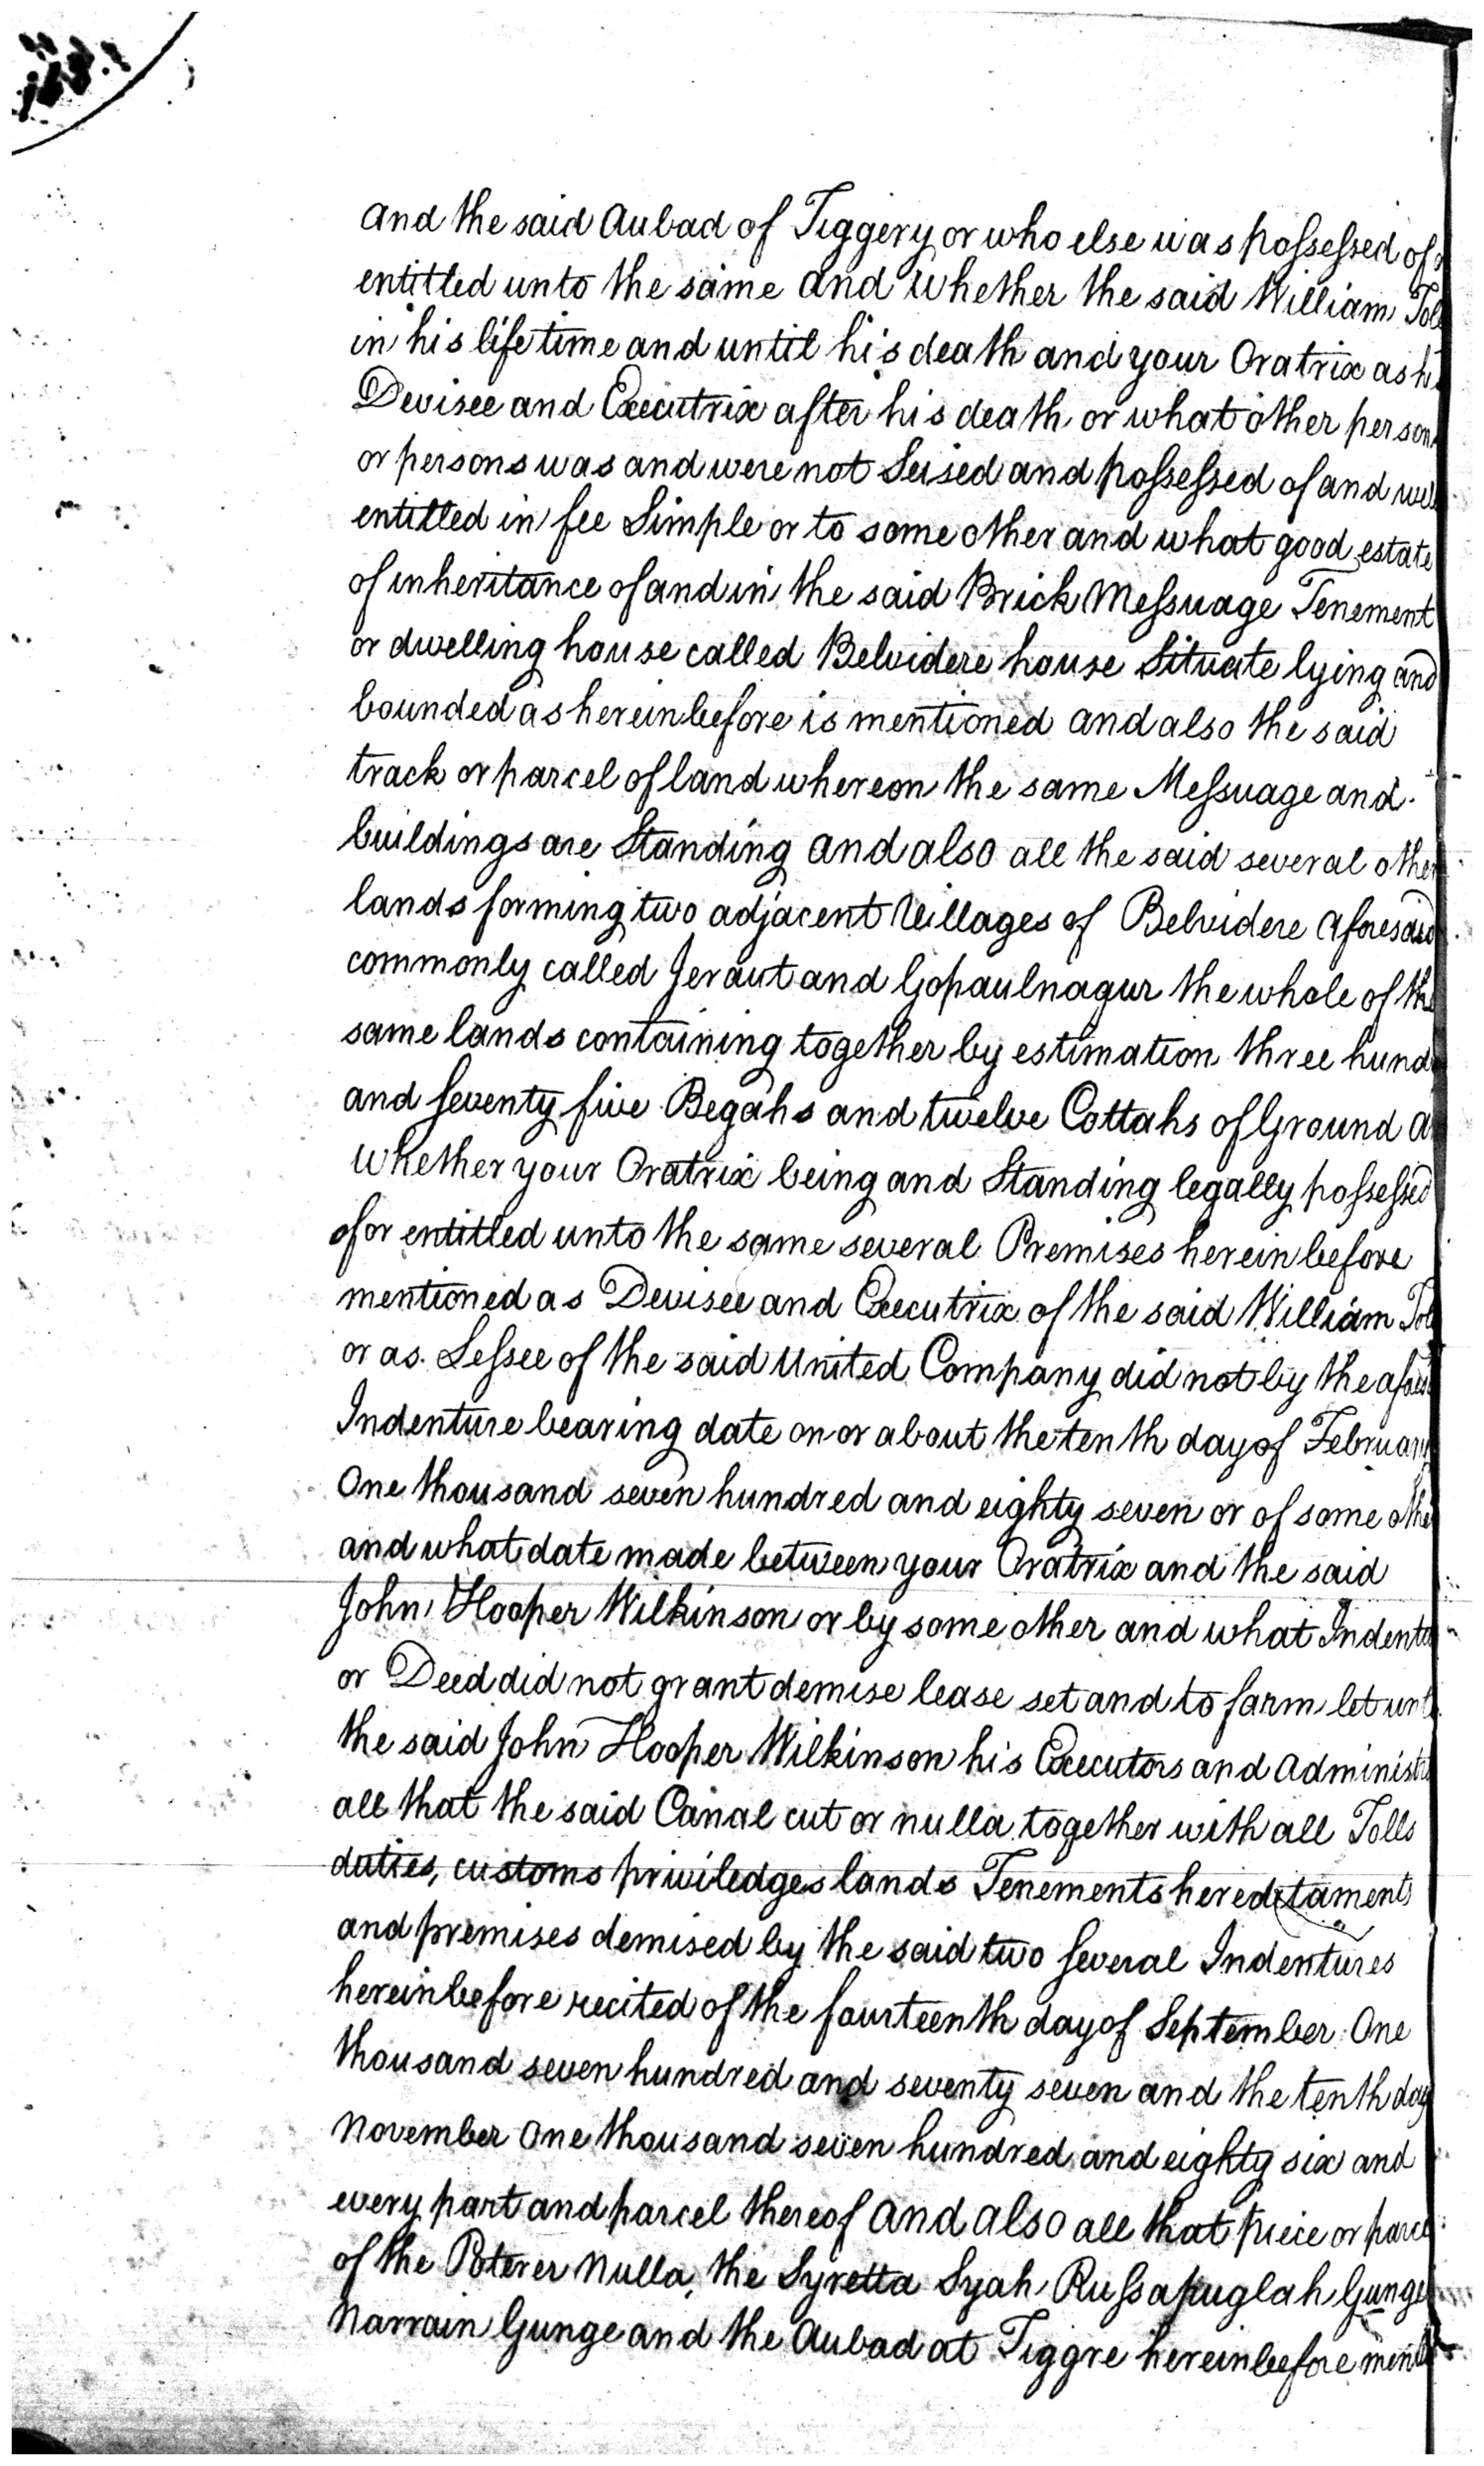 and the said Aubad of Tiggery or who else was possessed of
entitled unto the same and whether the said William Tol
in his life time and until his death and your Oratrix as hi
Devisee and Executrix after his death or what other person
or persons was and were not Seised and possessed of and we
entitled in fee Simple or to some other and what good estate
of inheritance of and in the said Brick Messuage Tenement
or dwelling house called Belvidere house Situate lying and
bounded as hereinbefore is mentioned and also the said
track or parcel of land whereon the same Messuage and
buildings are Standing and also all the said several other
lands forming two adjacent Villages of Belvidere aforesaid
commonly called Jeraut and Gopaulnagur the whole of the
same lands containing together by estimation three hund
and Seventy five Begahs and twelve Cottahs of Ground a
whether your Oratrix being and Standing legally possessed
of or entitled unto the same several Premises herein before
mentioned as Devisee and Executrix of the said William Tol
or as Lessee of the said United Company did not by the afores
Indenture bearing date on or about the tenth day of February
One thousand seven hundred and eighty seven or of some othe
and what date made between your Oratrix and the said
John Hooper Wilkinson or by some other and what Indentu
or Deed did not grant demise lease set and to farm let unt
the said John Hooper Wilkinson his Executors and Administ
all that the said Canal cut or nulla together with all Tolls
duties, customs priviledges lands Tenements hereditaments
and premises demised by the said two Several Indentures
hereinbefore recited of the fourteenth day of September One
thousand seven hundred and seventy seven and the tenth day
November One thousand seven hundred and eighty six and
every part and parcel thereof and also all that piece or parcel
of the Poterer Nulla, the Syretta Syah Russapuglah Gunge
Narrain Gunge and the Aubad at Tiggre hereinbefore ment